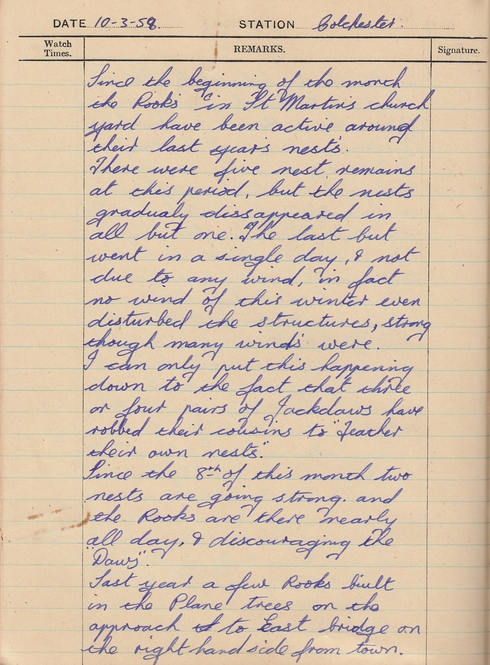 DATE 10-3-58. STATION Colchester.
Watch Times. REMARKS. Signature.
Since the beginning of the month
the Rooks in St Martin's church
yard have been active around
their last years nests.
There were five nest remains
at this period, but the nests
gradualy dissappeared in
all but one. The last but
went in a single day, & not
due to any wind, in fact
no wind of this winter even
disturbed the structures, strong
though many winds were.
I can only put this happening
down to the fact that three
or four pairs of Jackdaws have
robbed their cousins to "feather
their own nests".
Since the 8th of this month two
nests are going strong. and
the Rooks are there nearly
all day, & discouraging the
"Daws".
Last year a few Rooks built
in the Plane trees on the
approach to East bridge on
the right hand side from town.